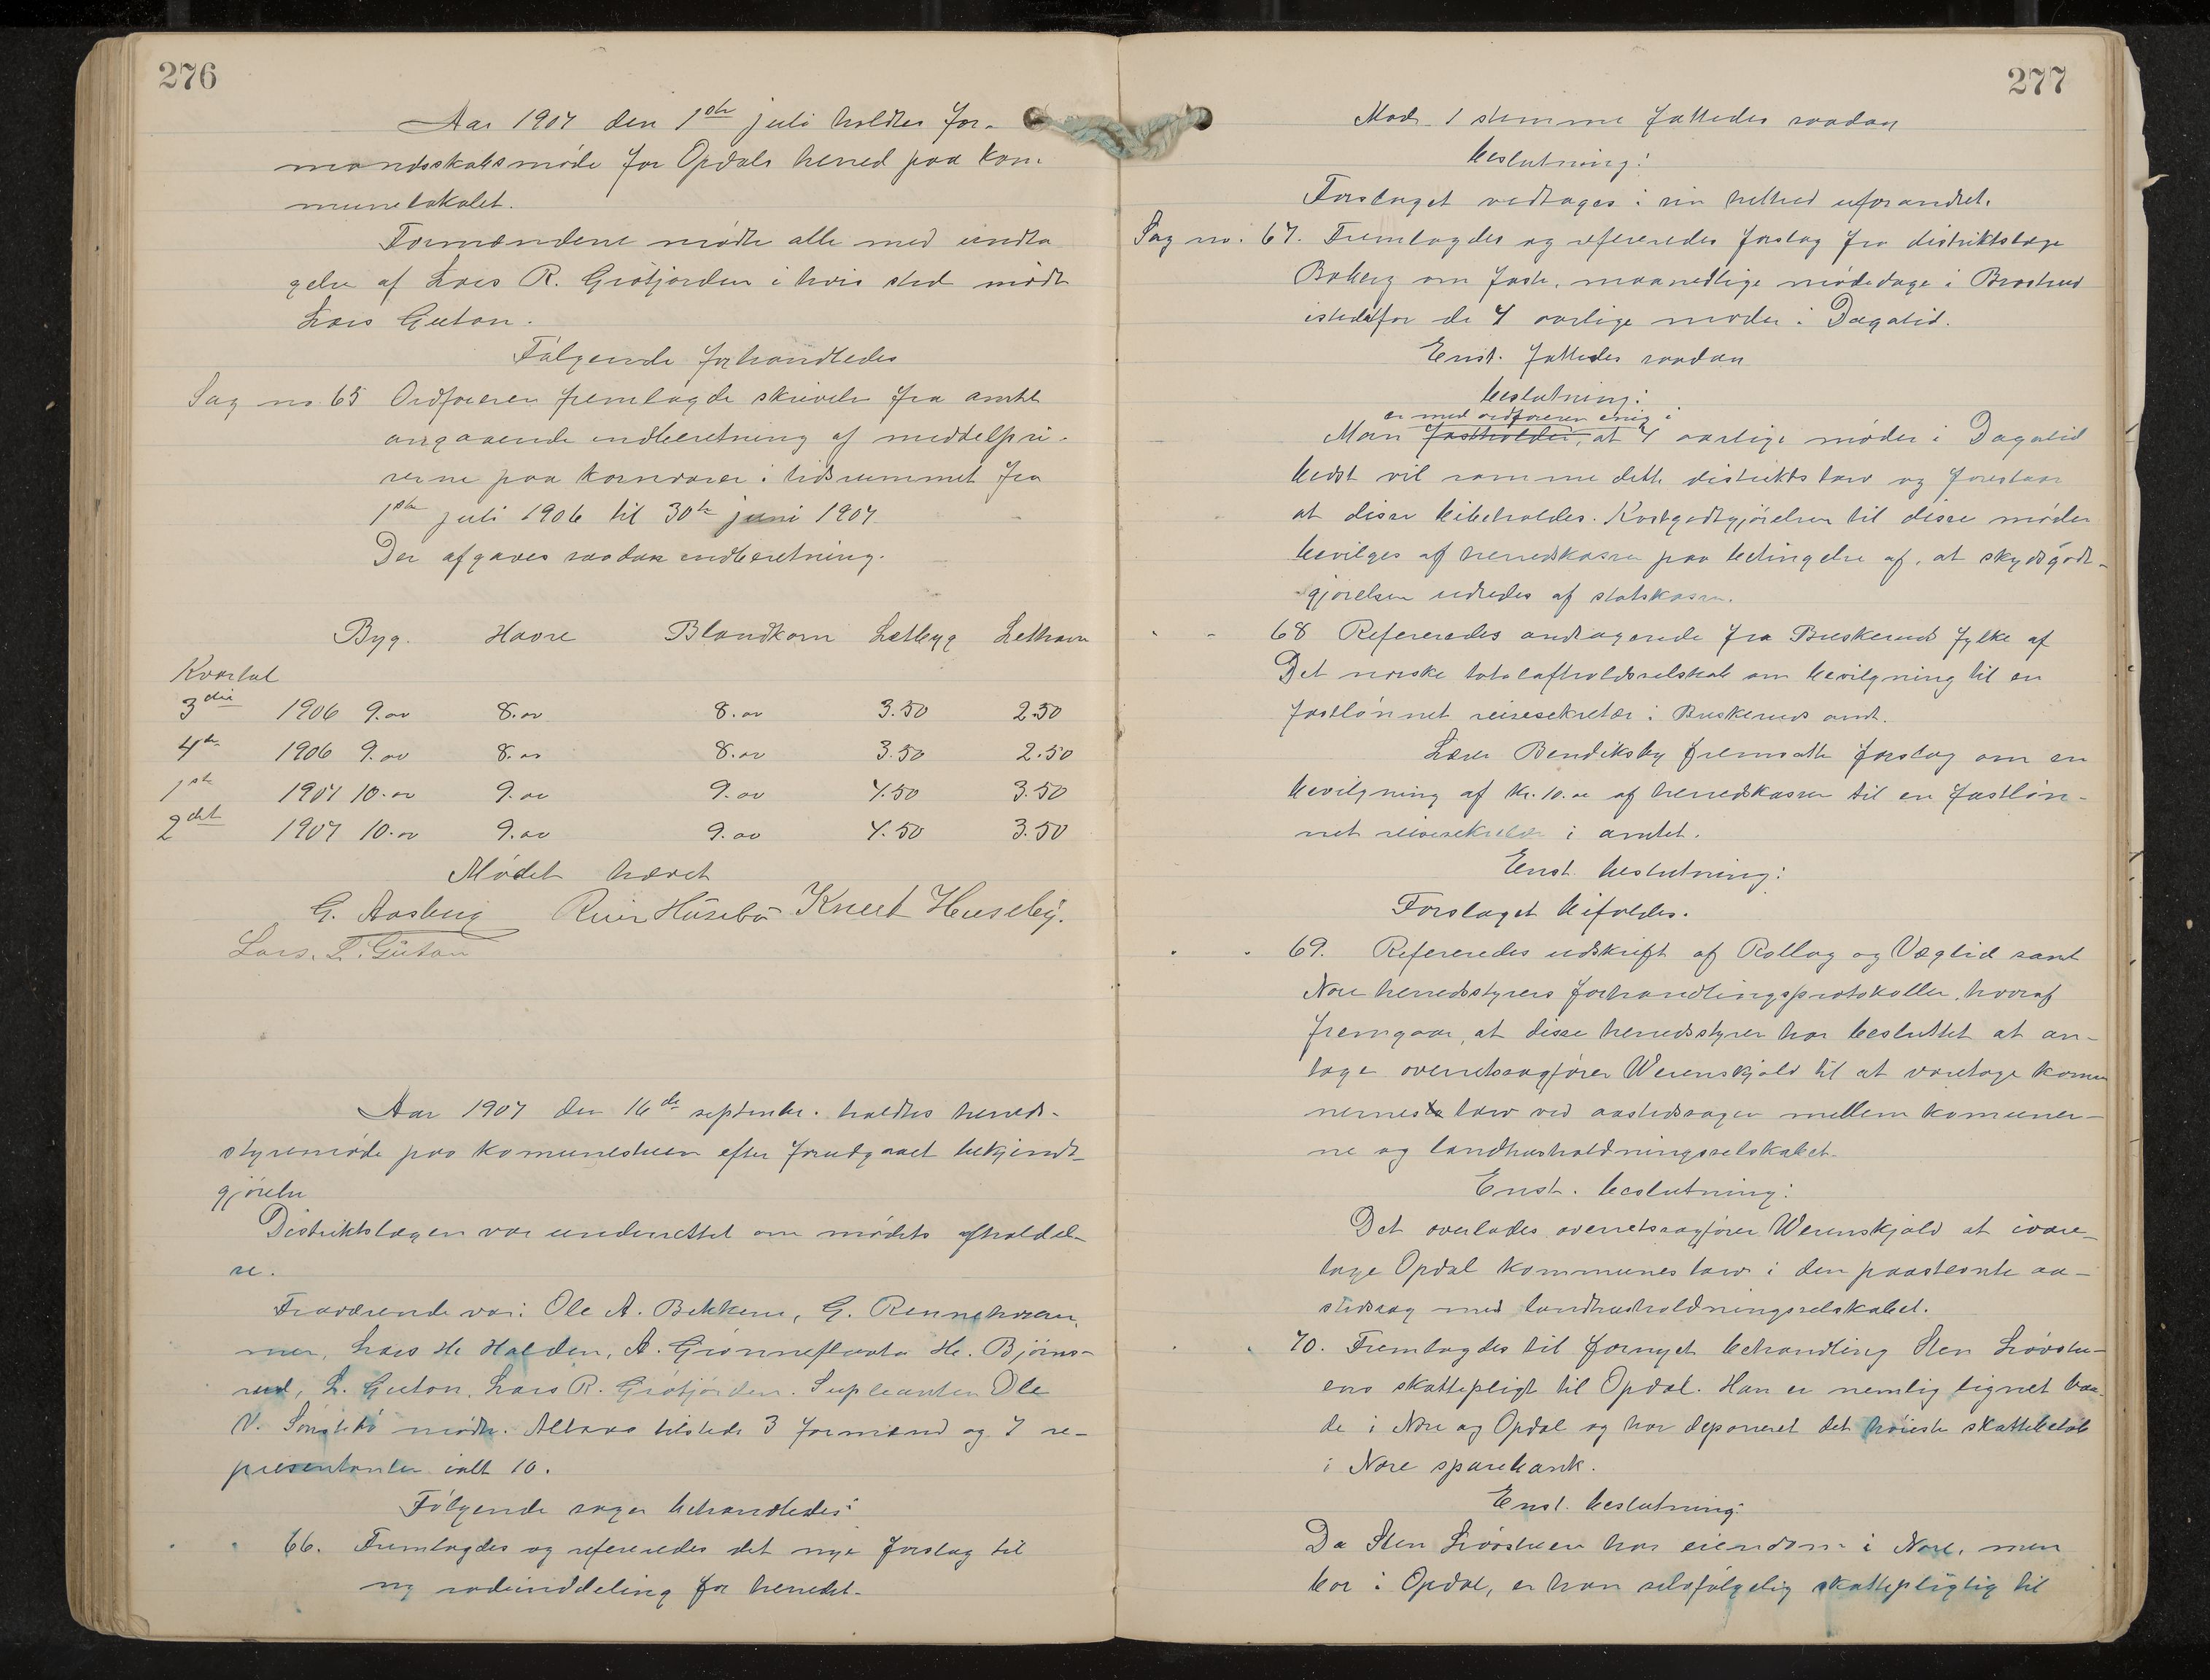 276
Aar 1907 den 1ste juli holdtes for-
mandsskabsmøde for Opdals herred paa kom-
munelokalet.
Formændene mødte alle med undta
gelse af Lars R. Grøtjorden i hvis sted mødte
Lars Guton.
Følgende forhandledes
Sag no 65 Ordføreren fremlagde skrivelse fra amtet
angaaende indberetning af middelpri-
serne paa kornvarer i tidsrummet fra
1ste juli 1906 til 30te juni 1907.
Der afgaves saadan indberetning.
Byg. Havre Blandkorn Letbyg Lethavre
Kvartal
3die 1906 9.00 8.00 8.00 3.50 2.50
4de 1906 9.00 8.00 8.00 3.50 2.50
1ste 1907 10.00 9.00 9.00 4.50 3.50
2det 1907 10.00 9.00 9.00 4.50 3.50
Mødet hævet
G. Aasberg Reier Husebø Knut Huseby.
Lars. L. Guton
Aar 1907 den 16de septembr. holdtes herreds-
styremøde paa komunestuen efter forudgaaet bekjendt-
gjørelse
Distriktslægen var underrettet om mødets afholdel-
se.
Fraværende var: Ole A. Bekkene, G. Rennehvam-
mer, Lars H. Halden, A. Grønneflaata H. Bjørns-
rud, L. Guton, Lars R. Grøtjorden. Supleanten Ole
V. Sønstebø mødte. Altsaa tilstede 3 formænd og 7 re-
presentanter ialt 10.
Følgende sager behandledes:
" " 66. Fremlagdes og refereredes det nye forslag til
ny rodeinddeling for herredet.
277
Mod 1 stemme fattedes saadan
beslutning:
Forslaget vedtages i sin helhed uforandret.
Sag no. 67. Fremlagdes og refereredes forslag fra distriktslæge
Boberg om faste, maanedlige mødedage i Brostrud
istedetfor de 4 aarlige møder i Dagalid.
Enst. fattedes saadan
beslutning:
er med ordføreren enig i
Man fastholder, at 4 aarlige møder i Dagalid
bedst vil ramme dette distrikts tarv og foreslaar
at disse bibeholdes. Kostgodtgjørelsen til disse møder
bevilges af herredskassen paa betingelse af, at skydsgodt-
gjørelsen udredes af statskassen.
" " 68 Refereredes andragende fra Buskeruds fylke af
Det norske totalafholdsselskab om bevilgning til en
fastlønnet reisesekretær i Buskeruds amt.
Lærer Bendiksby fremsatte forslag om en
bevilgning af kr. 10.00 af herredskassen til en fastløn-
net reisesekretær i amtet.
Enst. beslutning:
Forslaget bifaldes.
" " 69. Refereredes udskrift af Rollag og Væglid samt
Nore herredsstyrers forhandlingsprotokoller, hvoraf
fremgaar, at disse herredsstyrer har besluttet at an-
tage overretssagfører Werenskjold til at varetage komu
nernes tarv ved aastedssagen mellem komuner-
ne og landhusholdningsselskabet.
Enst. beslutning:
Det overlades overretssagfører Werenskjold at ivare-
tage Opdal kommunes tarv i den paastevnte aa-
stedssag med landhusholdningsselskabet.
" " 70. Fremlagdes til fornyet behandling Sten Løvstu-
ens skattepligt til Opdal. Han er nemlig lignet baa-
de i Nore og Opdal og har deponeret det høieste skattebeløb
i Nore sparebank.
Enst. beslutning:
Da Sten Løvstuen har eiendom i Nore, men
bor i Opdal, er han selvfølgelig skattepligtig til